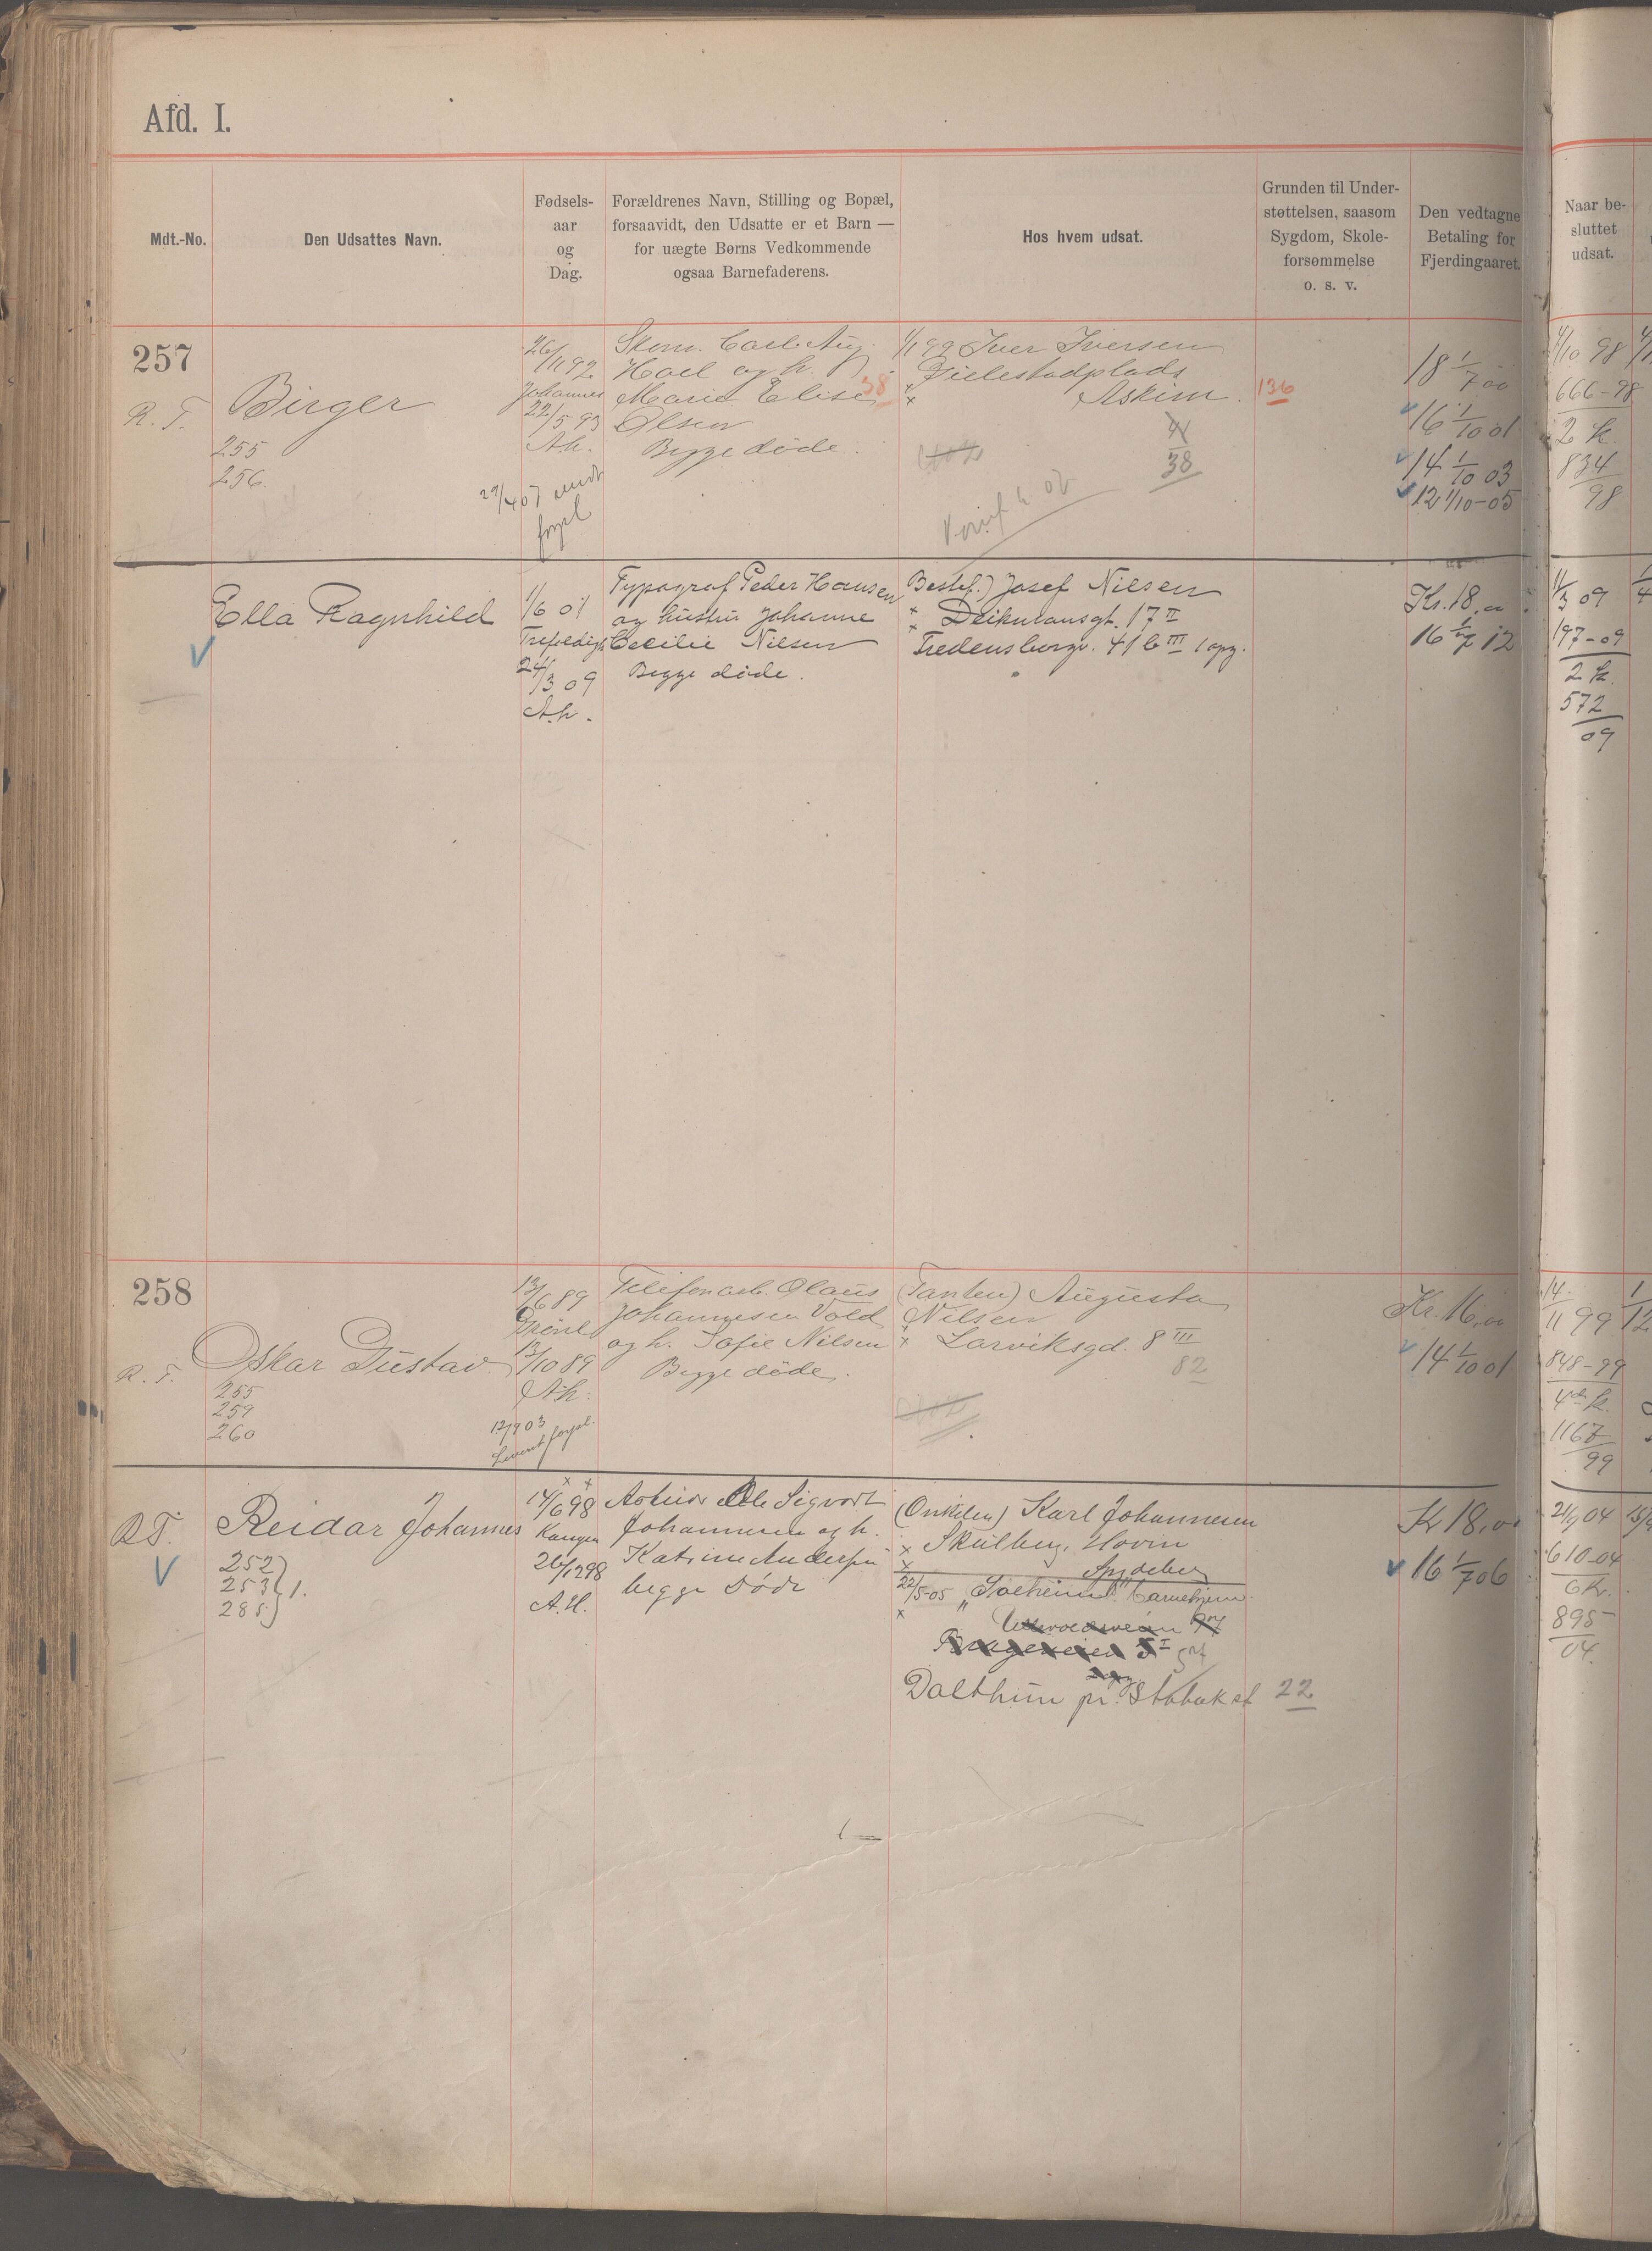 Afd. I.
Mdt.-No.
Den Udsattes Navn.
Fødsels-
aar
og
Dag.
Forældrenes Navn, Stilling og Bopæl,
forsaavidt, den Udsatte er et Barn —
for uægte Børns Vedkommende
ogsaa Barnefaderens.
Hos hvem udsat.
Grunden til Under-
støttelsen, saasom
Sygdom, Skole-
forsømmelse
o. s. v.
Den vedtagne
Betaling for
Fjerdingaaret.
Naar be-
sluttet
udsat.
257
R. F.
Birger
255
256.
26/11 92
Johannes
22/5 93
A.h.
Skom. Carl Aug.
Hoel og h.
Marie Elise 38
Olsen
Begge døde.
1/1 99 Iver Iversen
Askim.
38
136
18 1/7 00
16 1/10 01
14 1/10 03
12 1/10-05
1/10 98
666-98
2 k.
834
98
Ella Ragnhild
1/6 01
24/3 09
A.h.
Typograf Peder Hansen
og hustru Johanne
Cecilie Nilsen
Begge døde.
Bestef.) Josef Nilsen
41 b III opg.
Kr. 18,00
16 1/7 12
11/3 09
197-09
2 k.
572
09
258
R. F.
Oskar Gustav
255
259
260
13/6 89
Grønl
13/10 89
A.h.
13/9 03
Olaus
Johannesen Vold
og h. Sofie Nilsen
Begge døde.
(Tanten) Augusta
Nilsen
Larviksgd. 8 III
82
Kr. 16,00
14 1/10 01
14.
11 99
848-99
4de k.
1167
99
R F.
Reidar Johannes
252
253 } 1.
285
14/6 98
Kampen
26/12 98
A.H.
Arbeider Ole Sigvart
Johannesen og h.
Katrine Andersen
begge døde
(Onkelen) Karl Johannesen
Skulberg, Hovin
Spydeberg
22/5-05 „Solheim" barnehjem
Dalthun pr. Stabæk st 22
Kr 18,00
16 1/7 06
21/9 04
610-04
6 k.
895
04.